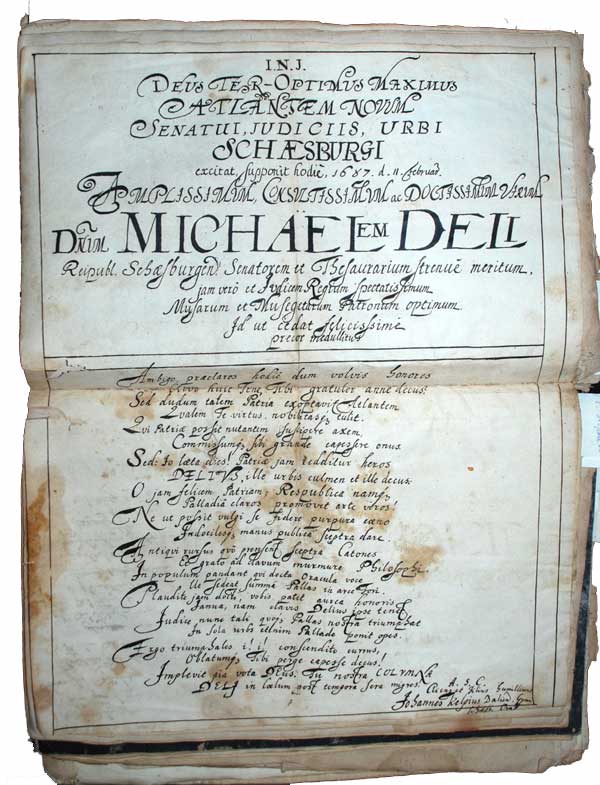 I.N.J.
DEUS TER-OPTIMUS MAXIMUS
ATLANTEM NOVUM
SENATUI, JUDICIIS, URBI
SCHÆSBURGI
excitat, supponit hodiè, 1687. d. 11. Februar.
AMPLISSIMUM, CONSULTISSIMUM ac DOCTISSIMUM VIRUM
DNUM MICHAELEM DELI
Reipubl. Schæsburgens. Senatorem et Thesaurarium strenuè meritum,
jam verò et Judicem Regium spectatissimum
Musarum et Musagetarum Patronum optimum
Id ut cedat felicissimè
precor
Ambigo, præclaros hodiè dum volvis honores
Novo huic Tene Tibi gratuler anne decus?
Sed dudum talem Patria exoptavit Atlantem
Qualem Te virtus, nobilitasq; tulit.
Qui Patriæ possit nutantem suscipere axem,
Commissumq; sibi grande capessere onus.
Sed Io læta dies! Patriæ jam redditur heros
DELIUS, ille urbis culmen et ille decus.
O jam felicem Patriam, Respublica namq;
Palladiâ claros promovet arte viros!
Ne ut possit vulgi se fidere purpura cæno
Indocilesq; manus publica sceptra dare.
Antiqui rursus quò pensent sceptra Catones
Et grato ad clavum murmure Philosophi.
In populum pandant qui docta Oracula voce
Ut sedeat summâ Pallas in arce fori.
Plaudite jam docti, vobis patet aurea honoris
Janua, nam clavis Delius ipse tenet.
Judice nunc tali, quoq; Pallas nostra triumphat
In sola urbs etenim Pallade ponit opes.
Ergo triumphales i! i! conscendito currus,
Oblatumq; Tibi perge capesse decus!
Implevit pia vota Deus. Tu nostra COLUMNA
DELI in cœlum post tempora sera migres.
A. S. C.
Cliens et Filius humillimus
Johannes Kelpius Dalia